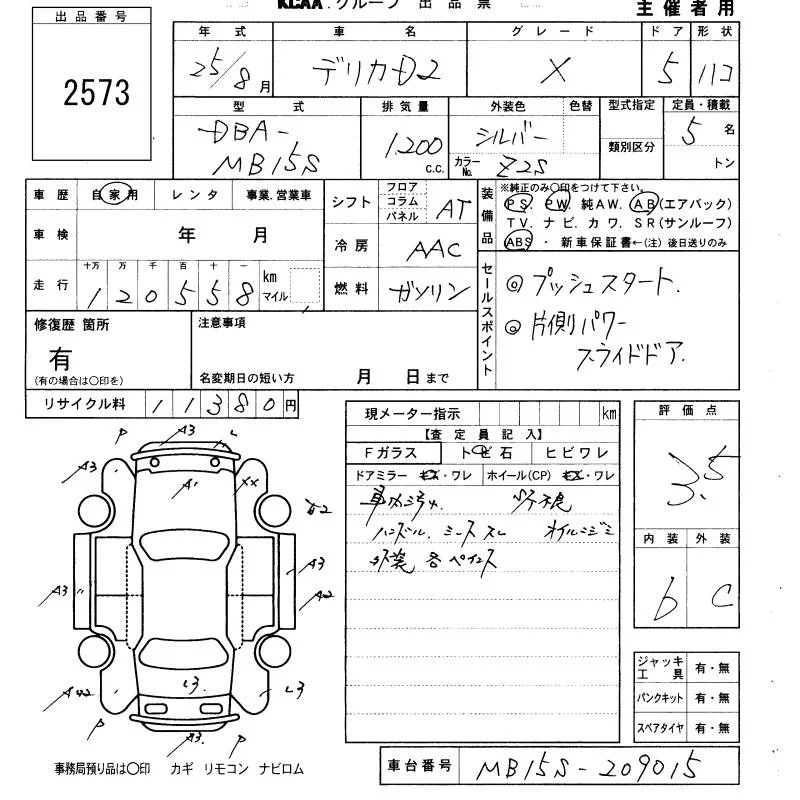 KCAA.グループ 出品票
主催者用
出品番号
2573
年式 車名 グレード ドア 形状
25/8月 デリカD2 X 5 ハコ
型式 排気量 外装色 色替 型式指定 定員・積載
DBA-
MB15S
1,200 c.c.
シルバー
カラーNo. Z2S
類別区分
5名
トン
車歴 自家用 レンタ 事業.営業車
車検 年 月
走行 十万 万 千 百 十 一
120558 km マイル
シフト フロア コラム パネル AT
冷房 AAC
燃料 ガソリン
装備品
※純正のみ〇印をつけて下さい。
PS. PW. 純AW. AB(エアバック)
TV. ナビ. カワ. SR(サンルーフ)
ABS ・ 新車保証書←(注) 後日送りのみ
セールスポイント
◎ プッシュスタート.
◎ 片側パワー
スライドドア.
修復歴 箇所
有
(有の場合は〇印を)
注意事項
名変期日の短い方 月 日まで
リサイクル料 11380円
現メーター指示 km
【査定員記入】
Fガラス トビ石 ヒビワレ
ドアミラー キズ・ワレ ホイール(CP) キズ・ワレ
ハンドル. シート スレ オイルニジミ
外装 各 ペイント
評価点
3.5
内装 外装
b C
ジャッキ
工具 有・無
パンクキット 有・無
スペアタイヤ 有・無
P A3 L
A3 A1 XX
A3 A3
A2
A42 L3 L3
P A3. P
事務局預り品は〇印 カギ リモコン ナビロム
車台番号 MB15S-209015